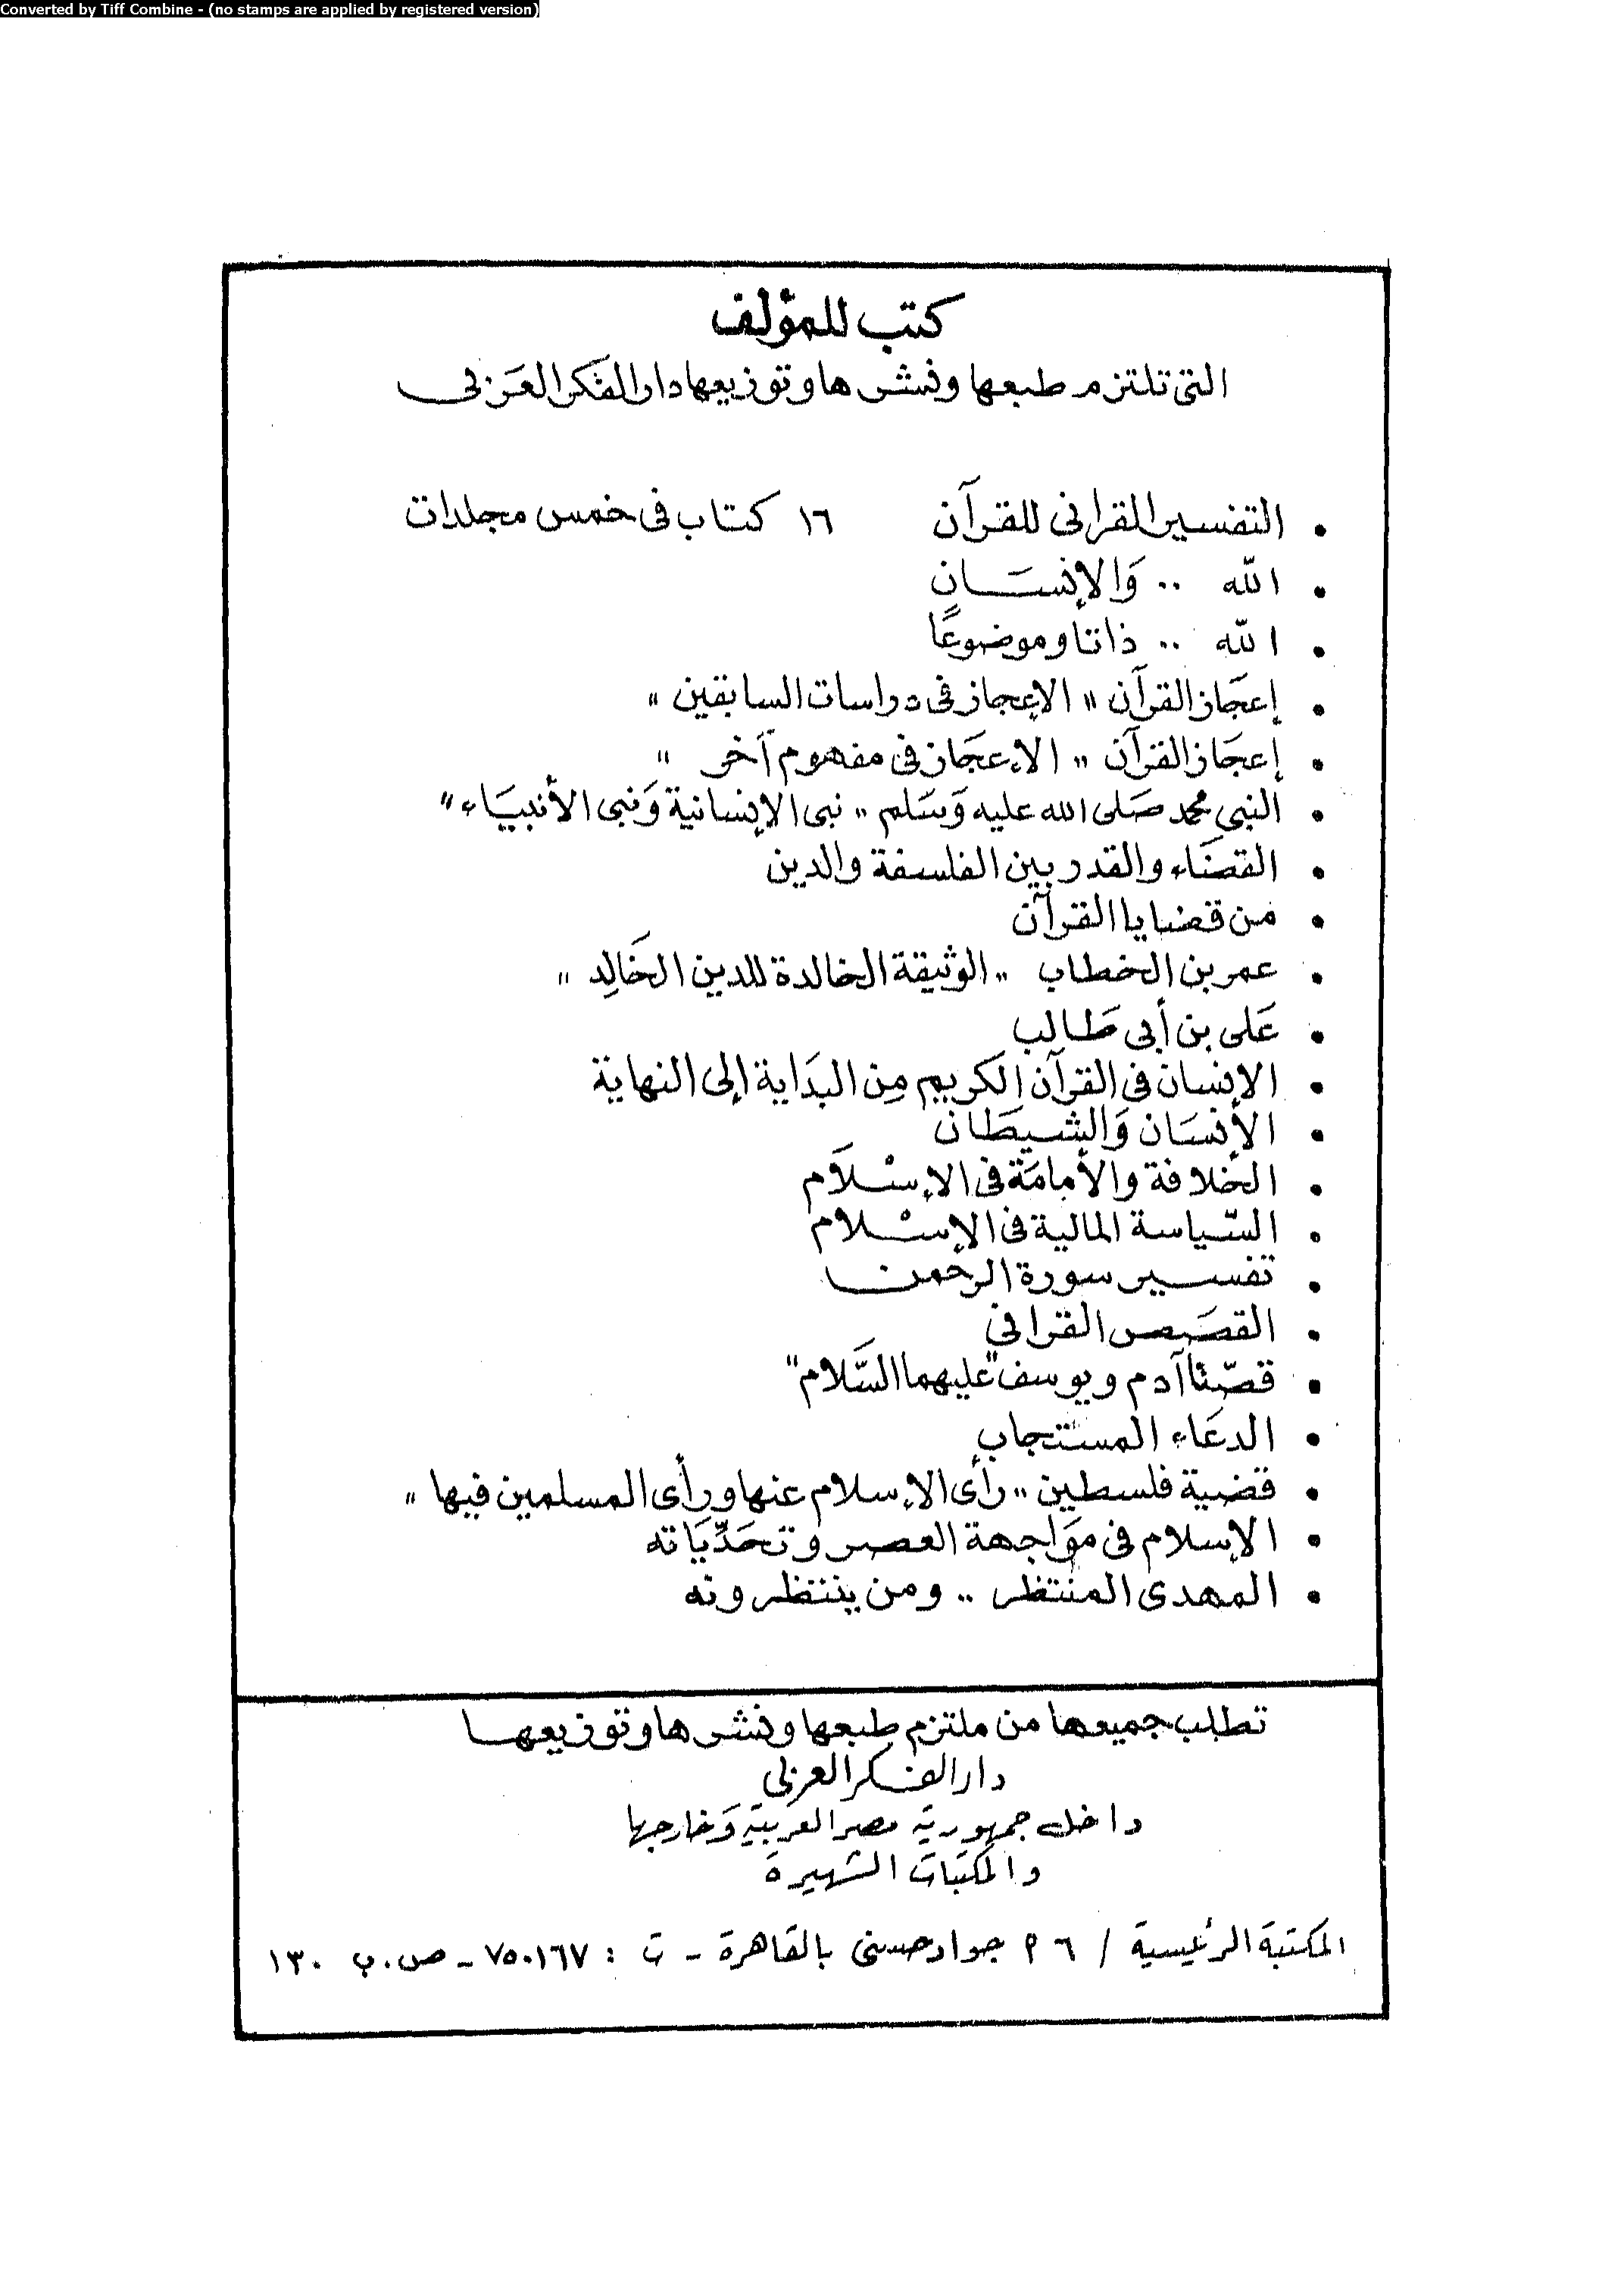 Converted by Tiff Combine - (no stamps are applied by registered version)
كتب للمؤلف
التى تلتزم طبعها ونشرها وتوزيعها دار الفكر العَربى
• التفسير القرانى للقرآن ١٦ كتاب فى خمس مجلدات
• الله .. وَالإنسَان
• الله .. ذاتا وموضوعًا
• إعجَاز القرآن "الإعجاز فى دراسات السابقين"
• إعجَاز القرآن "الإعجَاز فى مفهوم آخر"
• النبي محمد صَلى الله عليه وَسَلم "نبى الإنسانية وَنبى الأنبيَاء"
• القضَاء والقدر بين الفلسفة والدين
• من قضايا القرآن
• عمر بن الخطاب "الوثيقة الخالدة للدين الخَالِد"
• عَلى بن أبى طَالب
• الإنسان فى القرآن الكريم مِن البدَاية إلى النهاية
• الأنسَان وَالشيطَان
• الخلافة والأمامَة فى الإسْلَام
• السّياسة المالية فى الإسْلام
• تفسير سورة الرحمن
• القصَص القرانى
• قصّتا آدم ويوسف "عليهما السَّلام"
• الدعَاء المستجاب
• قضية فلسطين "رأى الإسلام عنها ورأى المسلمين فيها"
• الإسلام فى موَاجهة العصر وتحَدِّيَاته
• المهدى المنتظر .. ومن ينتظرونه
تطلب جميعها من ملتزم طبعها ونشرها وتوزيعها
دار الفكر العربى
داخل جمهورية مصر العربية وَخارجها
والمكتبات الشهيرة
المكتبة الرئيسية / ٦ ٩ جواد حسنى بالقاهرة - ت : ٧٥٠١٦٧ - ص.ب ١٣٠